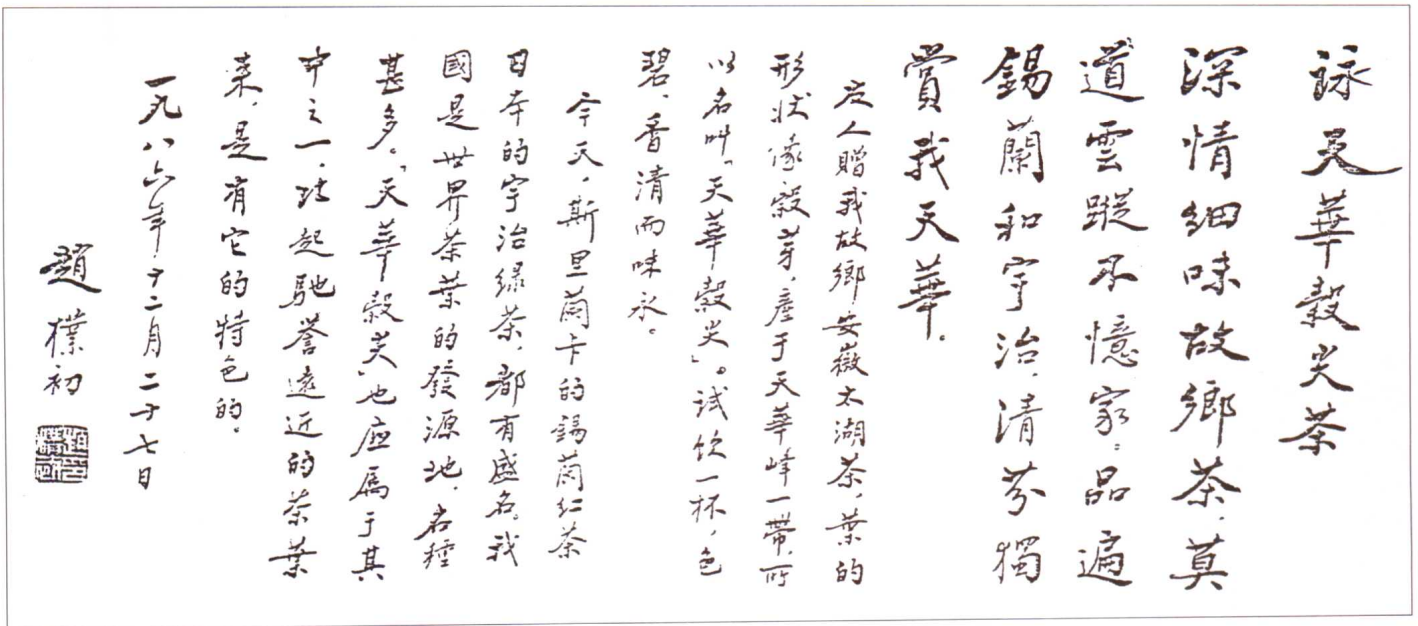 詠天華穀尖茶
深情細味故鄉茶，莫
道雲蹤不憶家；品遍
錫蘭和宇治，清芬獨
賞我天華。
友人贈我故鄉安徽太湖茶，葉的
形狀像穀芽，產于天華峰一帶，所
以名叫「天華穀尖」。试饮一杯，色
碧、香清而味永。
今天，斯里蘭卡的錫蘭红茶
日本的宇治绿茶，都有盛名。我
國是世界茶葉的發源地，名種
甚多。「天華穀尖」也应属于其
中之一，
起馳誉遠近的茶葉
来，是有它的特色的。
一九八六年十二月二十七日
趙樸初